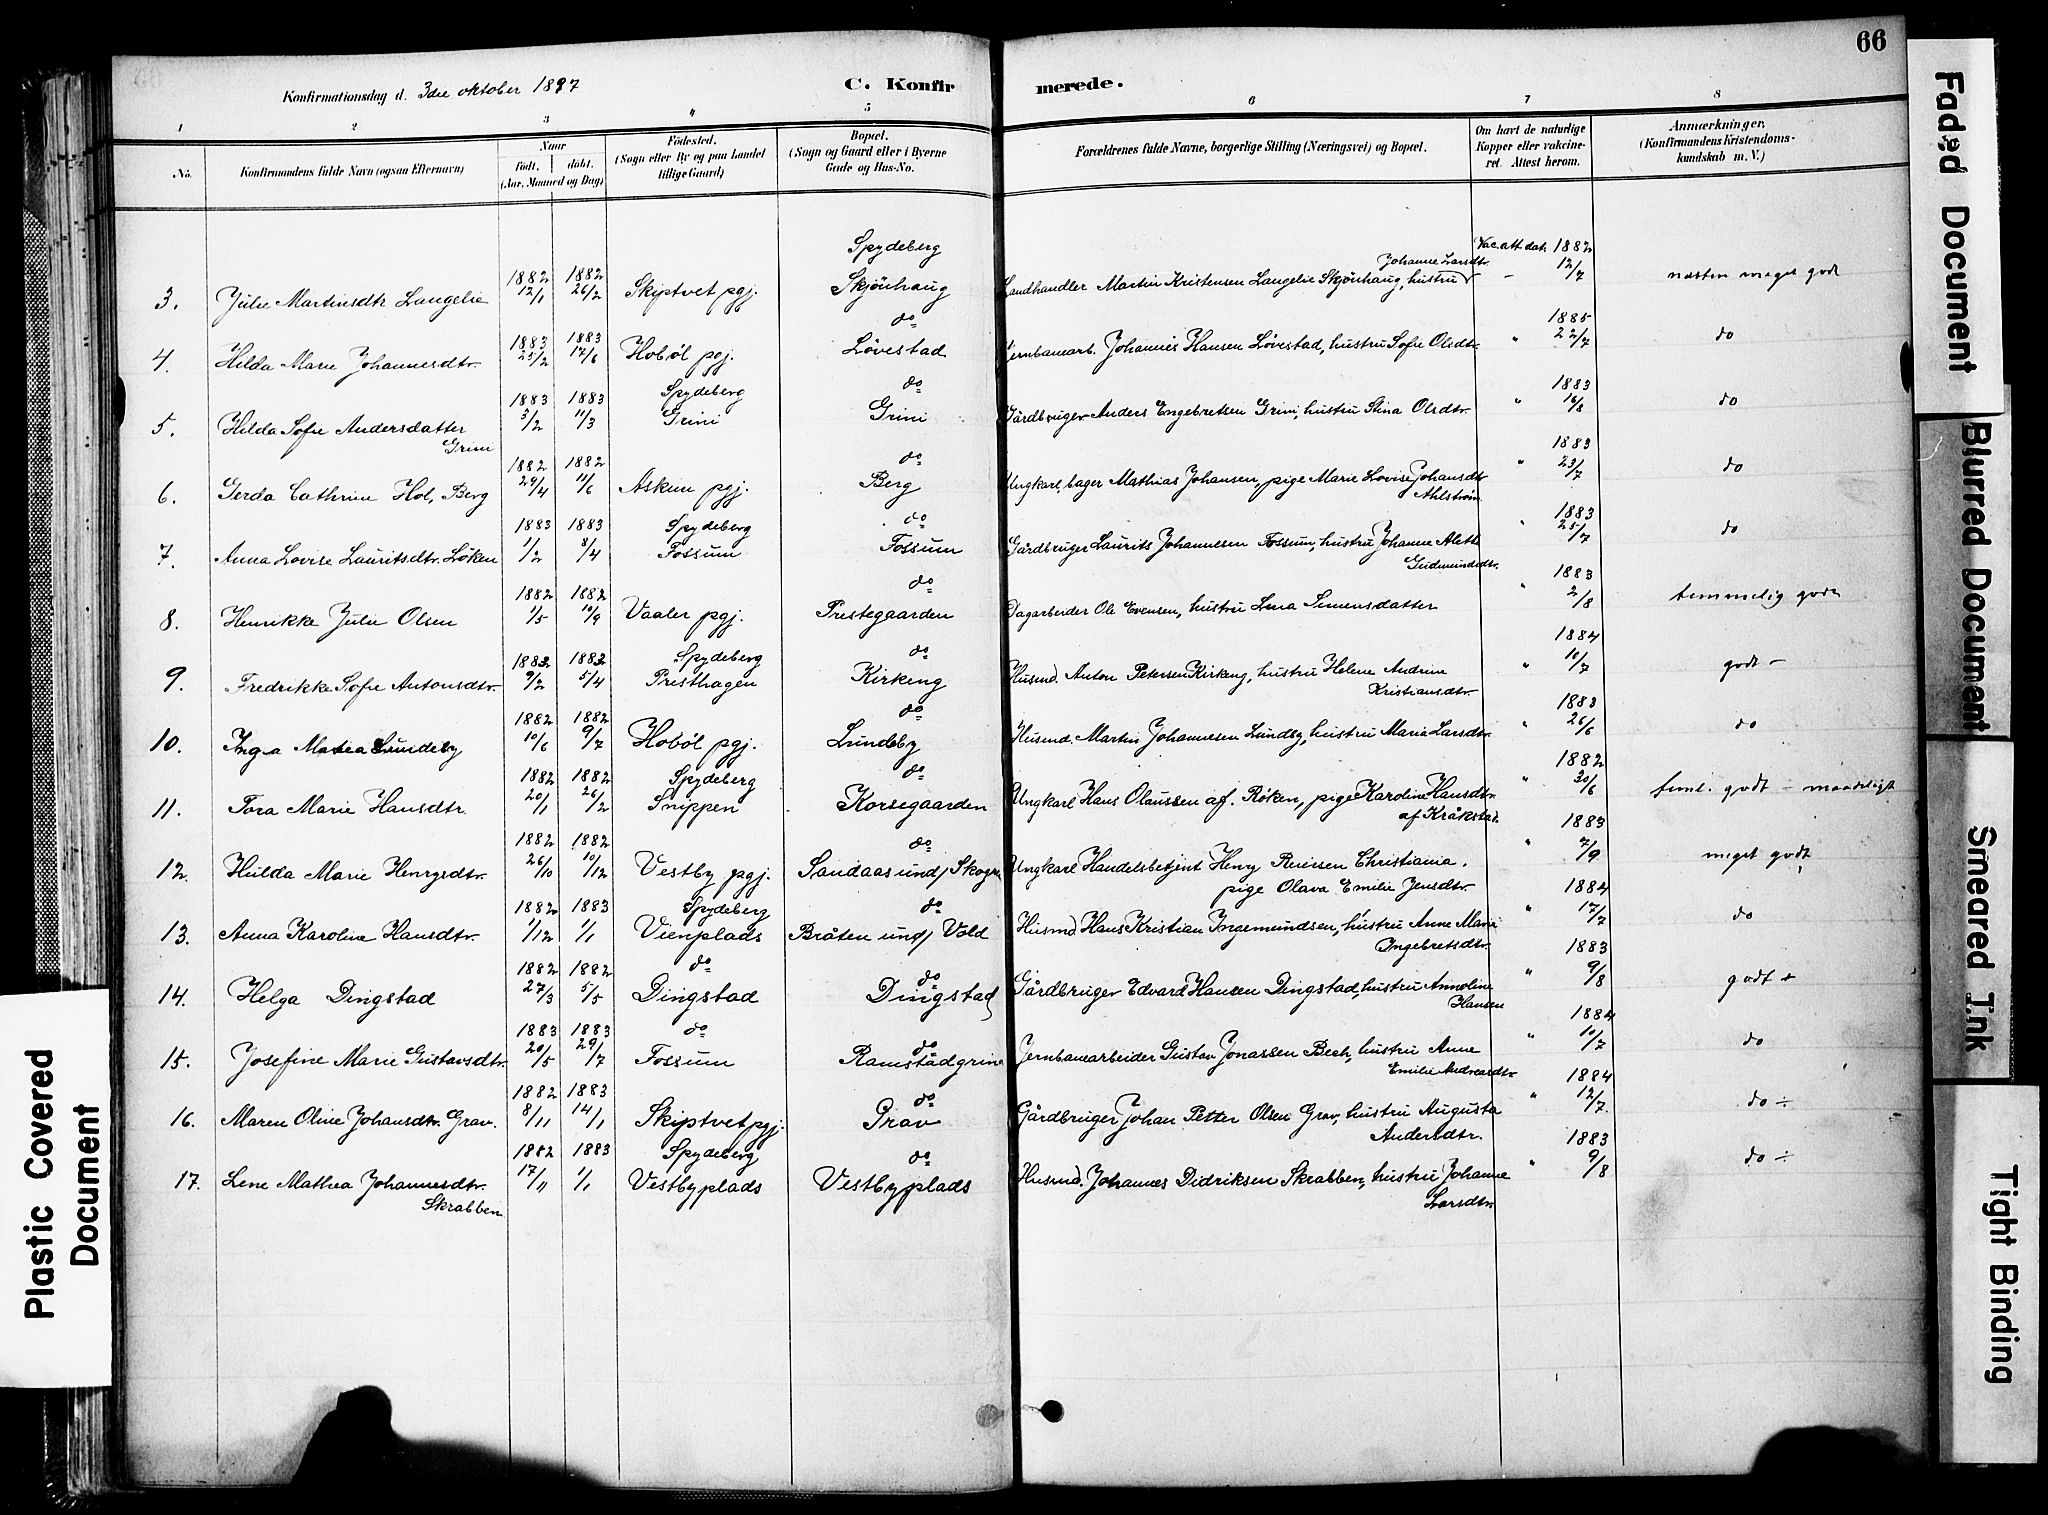 66
Konfirmationsdag d. 3die oktober 1897
C. Konfirmerede.
1 2 3 4 5 6 7 8
No. Konfirmandens fulde Navn (ogsaa Efternavn) Naar født. døbt. (Aar, Maaned og Dag) Fødested. (Sogn eller By og paa Landet tillige Gaard) Bopæl. (Sogn og Gaard eller i Byerne Gade og Hus-No. Forældrenes fulde Navne, borgerlige Stilling (Næringsvei) og Bopæl. Om havt de naturlige Kopper eller vakcineret. Attest herom. Anmærkninger. (Konfirmandens Kristendomskundskab m. V.)
Spydeberg Vac. att. dat. 1882
1882 1882 Johanne Larsdtr.
3. Julie Martinsdtr Langelie 12/1 26/2 Skiptvet pgj. Skjönhaug Landhandler Martin Kristensen Langelie Skjönhaug, hustru - 12/7 næsten meget godt
1883 1883 do 1885
4. Hilda Marie Johannesdtr. 25/2 17/6 Hobøl pgj. Løvestad Jernbanearb. Johannes Hansen Løvestad, hustru Sofie Olsdtr. " 22/7 do
1883 1883 Spydeberg do 1883
5. Hilda Sofie Andersdatter 3/2 11/3 Grini Grini Gårdbruger Anders Engebretsen Grini, hustru Stina Olsdtr. " 16/8 do
Grini
1882 1882 do 1883
6. Gerda Cathrine Hol, Berg 29/4 11/6 Askim pgj. Berg Ungkarl, bager Mathias Johansen, pige Marie Lovise Johansdtr " 23/7 do
Ahlstrøm
1883 1883 Spydeberg do 1883
7. Anna Lovise Lauritsdtr. Løken 1/2 8/4 Fossum Fossum Gårdbruger Laurits Johannesen Fossum, hustru Johanne Alette " 25/7 do
Gudmundsdtr.
1882 1882 do 1883
8. Henrikke Julie Olsen 1/5 10/9 Vaaler pgj. Prestegaarden Dagarbeider Ole Evensen, hustru Lena Simensdatter " 2/8 temmelig godt
1882 1882 Spydeberg do 1884
9. Fredrikke Sofie Antonsdtr. 9/2 5/4 Presthagen Kirkeng Husmd. Anton Petersen Kirkeng, hustru Helene Andrine " 10/7 godt -
Kristiansdtr.
1882 1882 do 1883
10. Inga Matea Lundeby 10/6 9/7 Hobøl pgj. Lundeby Husmd. Martin Johannesen Lundby, hustru Marie Larsdtr. " 26/6 do
1882 1882 Spydeberg do 1882
11. Tora Marie Hansdtr. 20/1 26/2 Snippen Korsegaarden Ungkarl Hans Olaussen af Røken, pige Karoline Hansdtr. " 30/6 teml. godt - maadeligt
af Kråkstad.
1882 1882 do 1883
12. Hulda Marie Henrysdtr. 26/10 10/12 Vestby pgj. Sandaas und/ Skogn Ungkarl Handelsbetjent Henry Reiersen Christiania. " 7/9 meget godt
pige Olava Emilie Jensdtr.
1882 1883 Spydeberg do 1884
13. Anna Karoline Hansdtr. 1/12 1/1 Vienplads Bråten und/ Vold Husmd Hans Kristian Ingemundsen, hustru Anne Marie " 17/7 do
Ingebretsdtr.
1882 1882 do do 1883
14. Helga Dingstad 27/3 5/5 Dingstad Dingstad Gårdbruger Edvard Hansen Dingstad, hustru Annoline " 9/8 godt +
Hansen
1883 1883 do do 1884
15. Josefine Marie Gustavsdtr. 20/5 29/7 Fossum Ramstadgrina Jernbanearbeider Gustav Jonassen Bech, hustru Anne " 10/7 do
Emilie Andreasdtr.
1882 1883 do 1884
16. Maren Oline Johansdtr. Grav. 8/11 14/1 Skiptvet pgj. Grav Gårdbruger Johan Petter Olsen Grav, hustru Augusta " 12/7. do ÷
Andersdtr.
1882 1883 Spydeberg do 1883
17. Lene Mathea Johannesdtr. 17/11 1/1 Vestbyplads Vestbyplads Husmd. Johannes Didriksen Skrabben, hustru Johanne " 9/8 do ÷
Skrabben Larsdtr.
Faded Document
Blurred Document
Smeared Ink
Tight Binding
Plastic Covered
Document